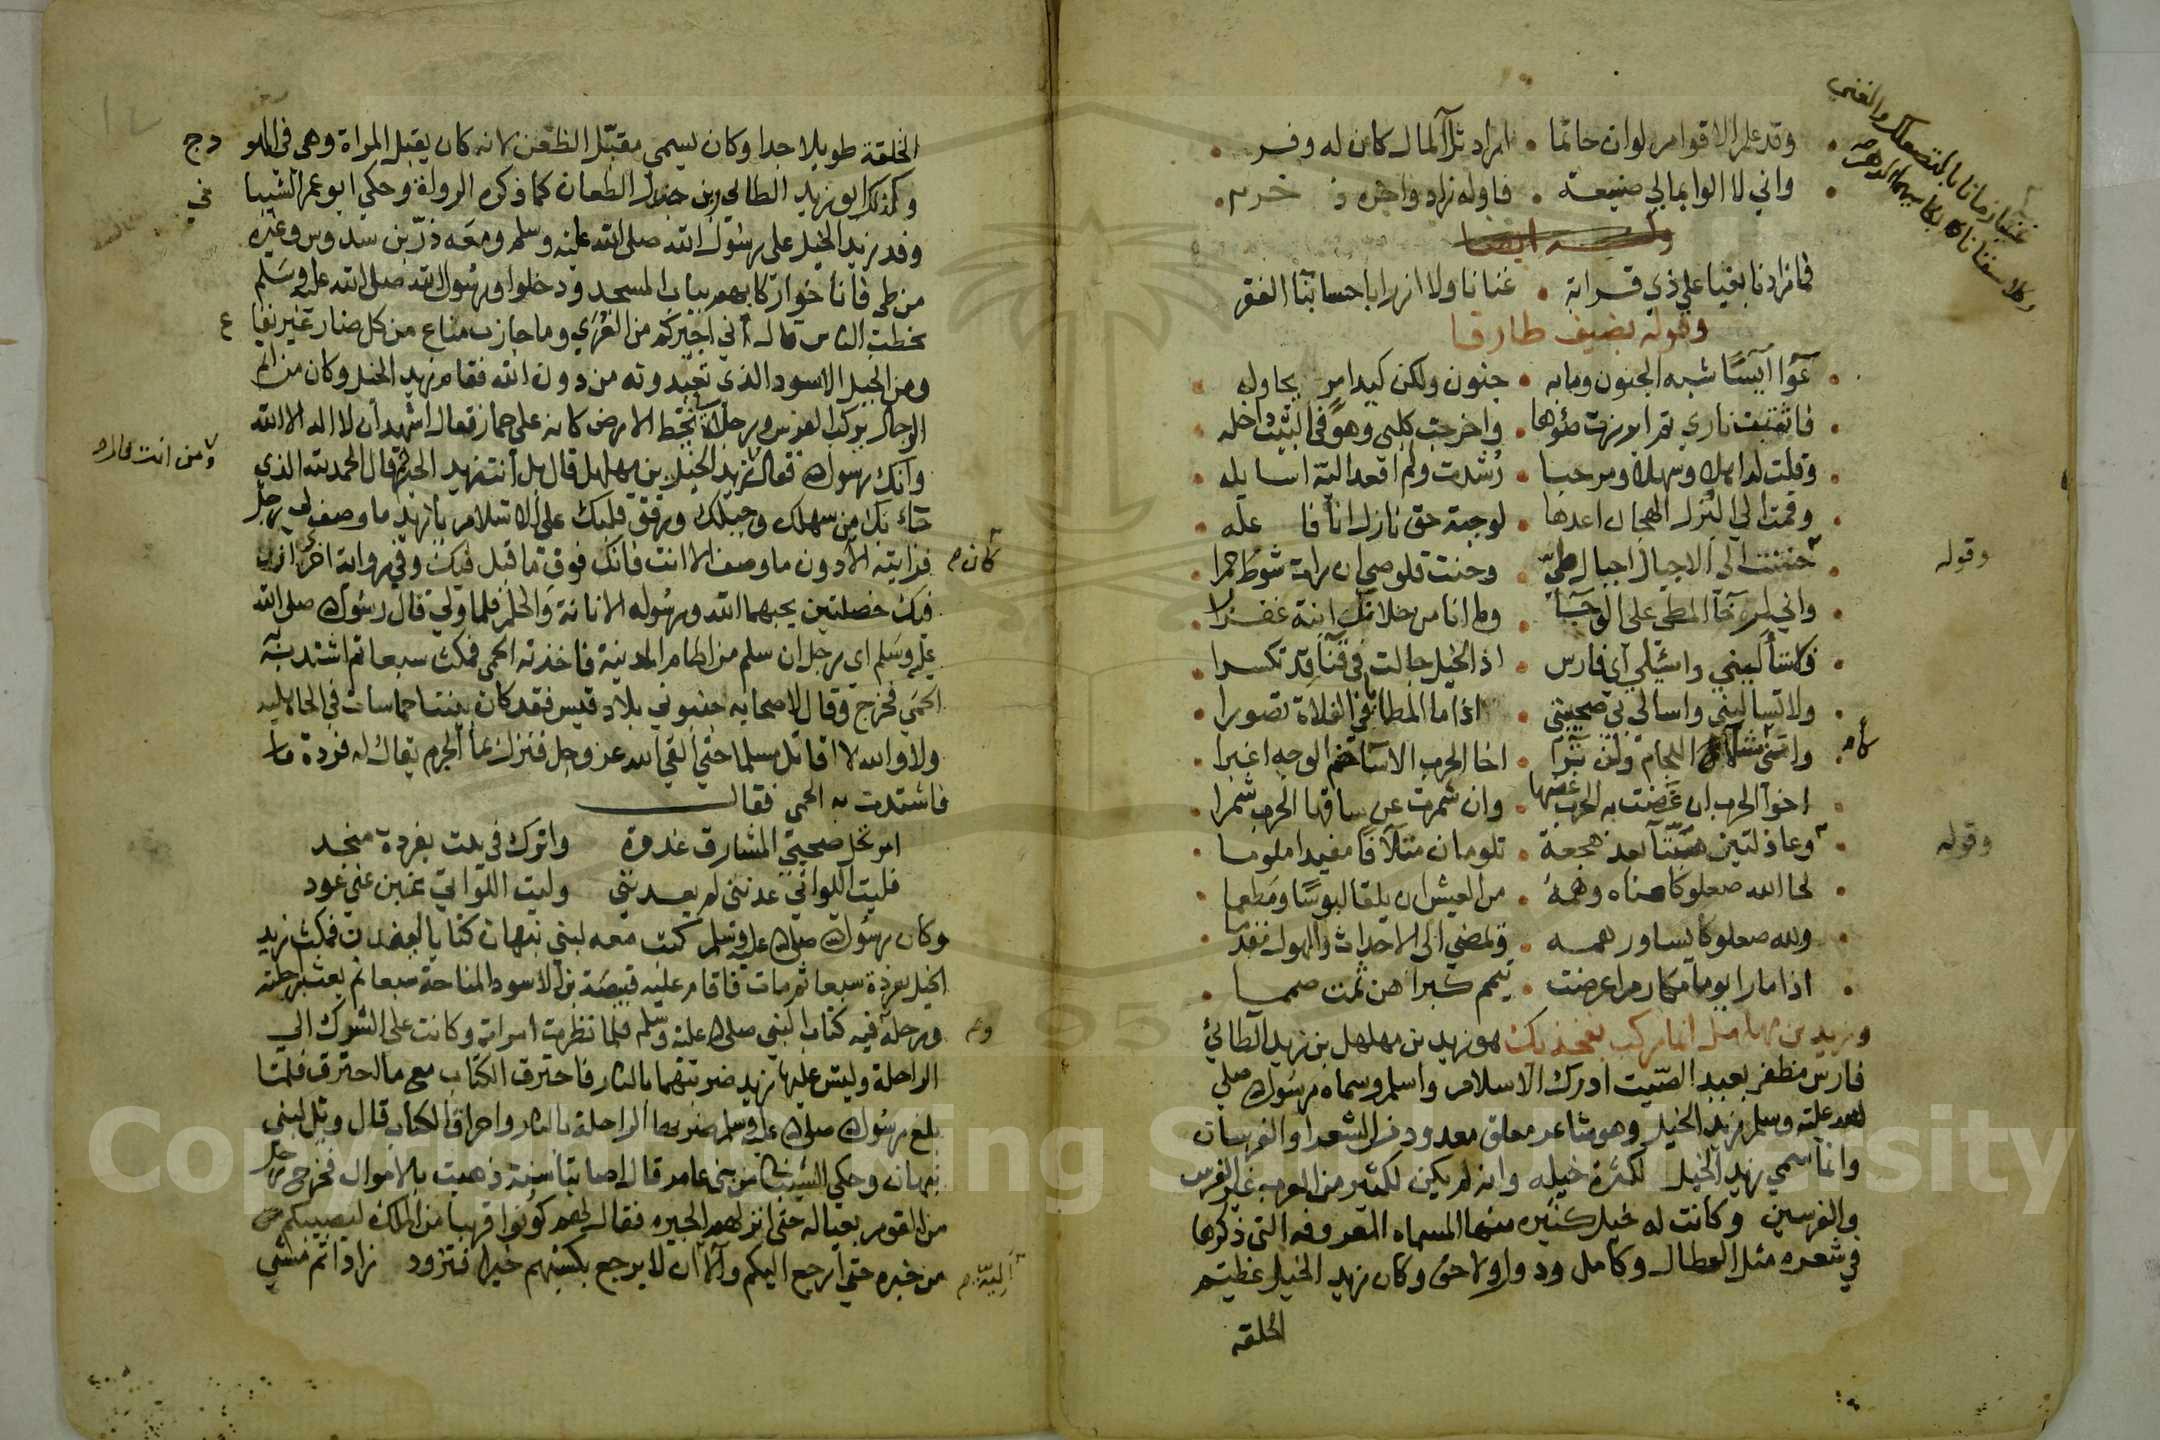 وقد علم الاقوام لوان حاتما • اراد ثرآ المال كان له وفر
واني لا الوا بمالي صنيعة • فاوله زاد واخره ذخر
فما زادنا بغيا علي ذي قرابة • غنانا ولا ازرا باحسابنا الفقر
غنينا زمانا بالتصعلك والغنى
وكلا سقاناه بكاسيهما الدهر
وقوله يضيف طارقا
عوا آيسًا شبه الجنون وما به • جنون ولكن كيد امر يحاوله
فاثقبت ناري ثم ابرزت ضوها • واخرجت كلبي وهو في البيت داخله
وقلت له اهلا وسهلا ومرحبا • رشدت ولم اقعد اليه اسايله
وقمت الي البزل الهجان اعدها • لوجبة حق نازل انا فاعله
وقوله
حننت الى الاجبال اجبال طيّ • وحنت قلوصي ان رات شوط احمرا
واني لمزجآ المطي على الوجآ • وما انا من خلانك ابنة عفزرا
فلا تسأليني واسئلي اي فارس • اذ الخيل جالت في قنآ قد تكسرا
ولا تساليني واسالي بي صحبتي • اذا ما المطايا في الفلاة تضورا
اخا الحرب الا ساهم الوجه اغبرا
اخو الحرب ان عضت به الحرب عضها • وان شمرت عن ساقها الحرب شمرا
وقوله
وعاذلتين هبتآ بعد هجعة • تلومان متلافا مفيدا ملوما
لحا الله صعلوكا مناه وهمه • من العيش ان يلقا لبوسًا ومطعما
ولله صعلوكا يساور همه • ويمضي الى الاحداث والهول مقدما
اذا ما را يوما مكارم اعرضت • تيمم كبراهن ثمت صمما
وزيد بن مهلهل انما ركب بفخذيك هو زيد بن مهلهل بن زيد الطائي
فارس مظفر بعيد الصيت ادرك الاسلام واسلم وسماه رسول صلي
الله عليه وسلم زيد الخيل وهو شاعر مغلق معدود في الشعرا والفرسان
وانما سمي زيد الخيل لكثرة خيله وانه لم يكن لكثير من العرب غير الفرس
والفرسين وكانت له خيل كثيره منها المسماه المعروفه التى ذكرها
في شعره مثل الهطال وكامل ودوول ولاحق وكان زيد الخيل عظيم
الخلقه
الخلقة طويلا جدا وكان يسمي مقبّل الظعن لانه كان يقبل المراة وهي في الهودج
وكذلك ابو زيد الطائي وابن جذل الطعان كما ذكره الرواة وحكي ابو عمر الشيباني
وفد زيد الخيل على رسول الله صلى الله عليه وسلم ومعه زرّ بن سدوس وغيره
من طي فاناخوا ركابهم بباب المسجد ودخلوا ورسول الله صلى الله عليه وسلم
يخطب الناس قال اني اخبركم من العزي وما حازت مناع من كل ضار غير نفاع
ومن الجبل الاسود الذي تعبدونه من دون الله فقام زيد الخيل وكان من اتم
الرجال يركب الفرس ورجلاه تخط الارض كانه على حمار فقال اشهد ان لا اله الا الله
وانك رسول الله فقال ومن انت قال انا زيد الخيل بن مهلهل قال بل انت زيد الخير ثم قال الحمد لله الذي
جاء بك من سهلك وجبلك ورقق قلبك على الاسلام يا زيد ما وصف لي رجل
فرايته الا كان دون ما وصف الا انت فانك فوق ما قيل فيك وفي رواية اخرى ان
فيك خصلتين يحبهما الله ورسوله الاناة والحلم فلما ولي قال رسول صلى الله
عليه وسلم اي رجل ان سلم من اطام المدينة فاخذته الحمى فمكث سبعا ثم اشتدت به
الحمى فخرج وقال لاصحابه جنبوني بلاد قيس فقد كان بيننا حماسات في الجاهلية
ولا والله لا اقاتل مسلما حتى القي الله عز وجل فنزل بمآ لجرم يقال له فردة
فاشتدت به الحمى فقال
امرتحل صحبتي المشارق غدوة واترك في بيت بفردة منجد
فليت اللواتي عدنني لم يعدنني وليت اللواتي غبن عني عود
وكان رسول الله صلى الله عليه وسلم كتب معه لبني نبهان كتابا فمكث زيد
الخيل بفردة سبعا ثم مات فاقام عليه قبيصة بن الاسود المناحة سبعا ثم بعث راحلته
ورحله فيه كتاب النبي صلى الله عليه وسلم فلما نظرت امراته وكانت على الشرك الي
الراحلة وليس عليها زيد ضربتهما بالنار فاحترق الكتاب مع ما احترق فلما
بلغ رسول الله صلى الله عليه وسلم ضربها الراحلة بالنار واحراق الكتاب قال ويل لبني
نبهان وحكي الشيباني من بني عامر قال اصابتنا سنة ذهبت بالاموال فخرج رجل
من القوم بعياله حتى انزلهم الحيره فقال لهم كونوا قريبا من الملك ليصيبكم
من خيره حتى ارجع اليكم وآلا ان لا يرجع يكسبهم خيرا فتزود زادا ثم مشي
Copyright © King Saud University
1957